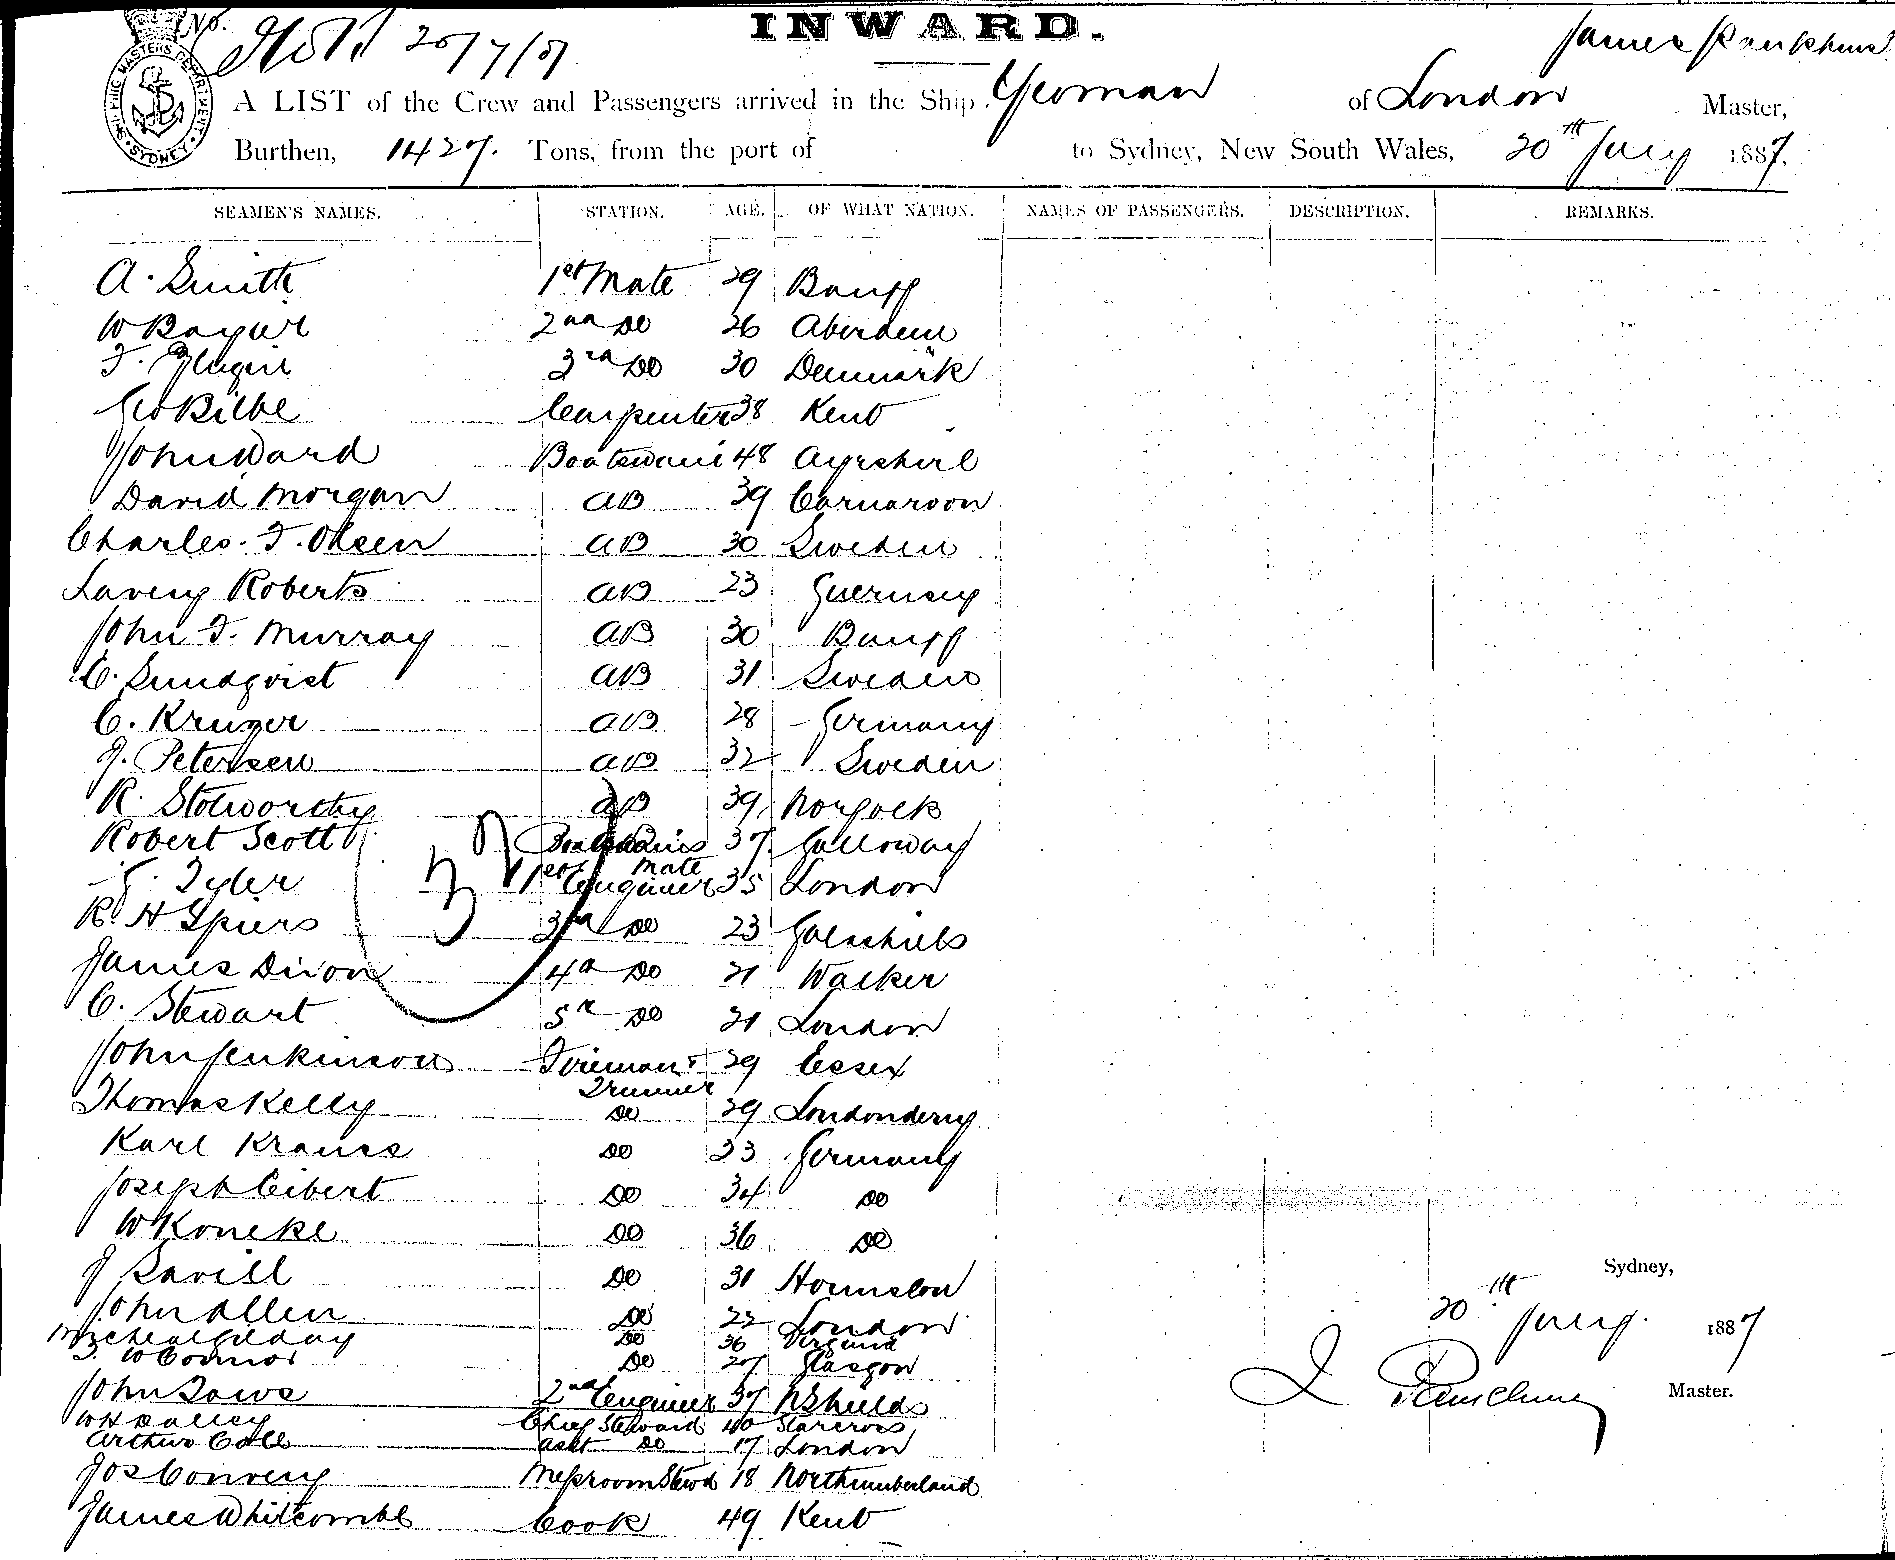 No.
INWARD.
20/7/87
James Pankhurst
A LIST of the Crew and Passengers arrived in the Ship Yeoman of London Master,
Burthen, 1427. Tons, from the port of to Sydney, New South Wales, 20th July 1887.
SHIPPING MASTERS DEPARTMENT SYDNEY
SEAMEN'S NAMES. STATION. AGE. OF WHAT NATION. NAMES OF PASSENGERS. DESCRIPTION. REMARKS.
A. Smith 1st Mate 29 Banff
W 2nd Do 26 Aberdeen
3rd Do 30 Denmark
Geo Bilbe Carpenter 38 Kent
John Ward Boatswain 48 Ayrshire
David Morgan AB 39 Carnarvon
Charles. F. Olsen AB 30 Sweden
Lavery Roberts AB 23 Guernsey
John F. Murray AB 30 Banff
C. Sundqvist AB 31 Sweden
C. Kruger AB 28 Germany
J. Petersen AB 32 Sweden
R. Stolworthy AB 39 Norfolk
Robert Scott Boatswains Mate 37 Galloway
Tyler 1st Engineer 35 London
R. H Spiers 3rd Do 23 Galashiels
James Dixon 4th Do 21 Walker
C. Stewart 5th Do 21 London
John Jenkinson Fireman & Trimmer 29 Essex
Thomas Kelly Do 29 Londonderry
Karl Krauss Do 23 Germany
Joseph Cibert Do 34 Do
W Koneke Do 36 Do
J Savill Do 31 Hounslow
John Allen Do 22 London
Micheal Gilday Do 36 Virginia
O'Connor Do 27 Glasgow
John Taws 2nd Engineer 37 N Shields
W H Dalley Chief Steward 40 Starcross
Arthur Coll Asst Do 17 London
Jos Convery Messroom Stewd 18 Northumberland
James Whitcombe Cook 49 Kent
Sydney,
20th July. 1887
J Pankhurst Master.